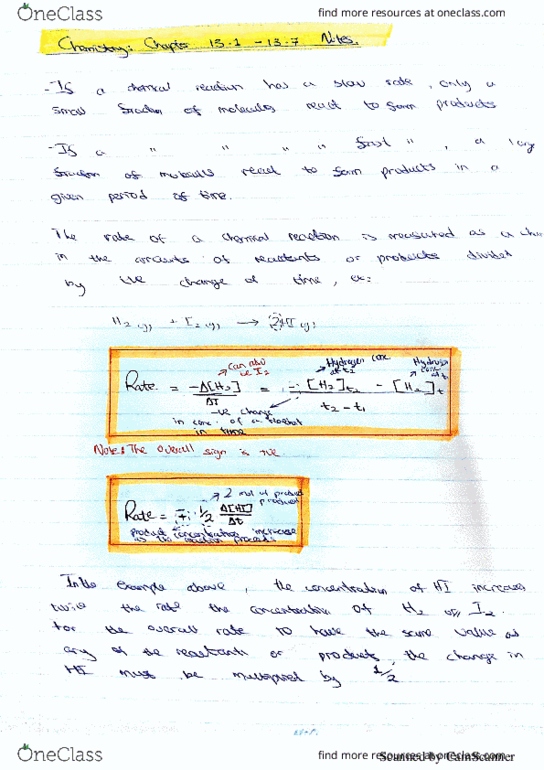 OneClass
find more resources at oneclass.com
Chemistry: Chapter 13.1 - 13.7 Notes.
- If a chemical reaction has a slow rate, only a
small fraction of molecules react to form products
- If a " " " " fast ", a larg
fraction of molecules react to form products in a
given period of time.
The rate of a chemical reaction is measured as a cha
in the amounts of reactants or products divided
by the change of time, ex:
H₂(g) + I₂(g) → 2HI(g)
can also be I₂
Hydrogen conc at t₂
Rate = -Δ[H₂]/ΔT = - [H₂]t₂ - [H₂]t / t₂ - t₁
-ve change
in conc. of a
in time
Note: The overall sign is +ve
2 mol of product
product
Rate = + 1/2 Δ[HI]/Δt
product concentration increase
as the reaction proceeds
In the example above, the concentration of HI increases
twice the rate the concentration of H₂ or I₂.
For the overall rate to have the same value as
any of the reactants or products, the change in
HI must be multiplied by 1/2
OneClass
find more resources at oneclass.com
Scanned by CamScanner